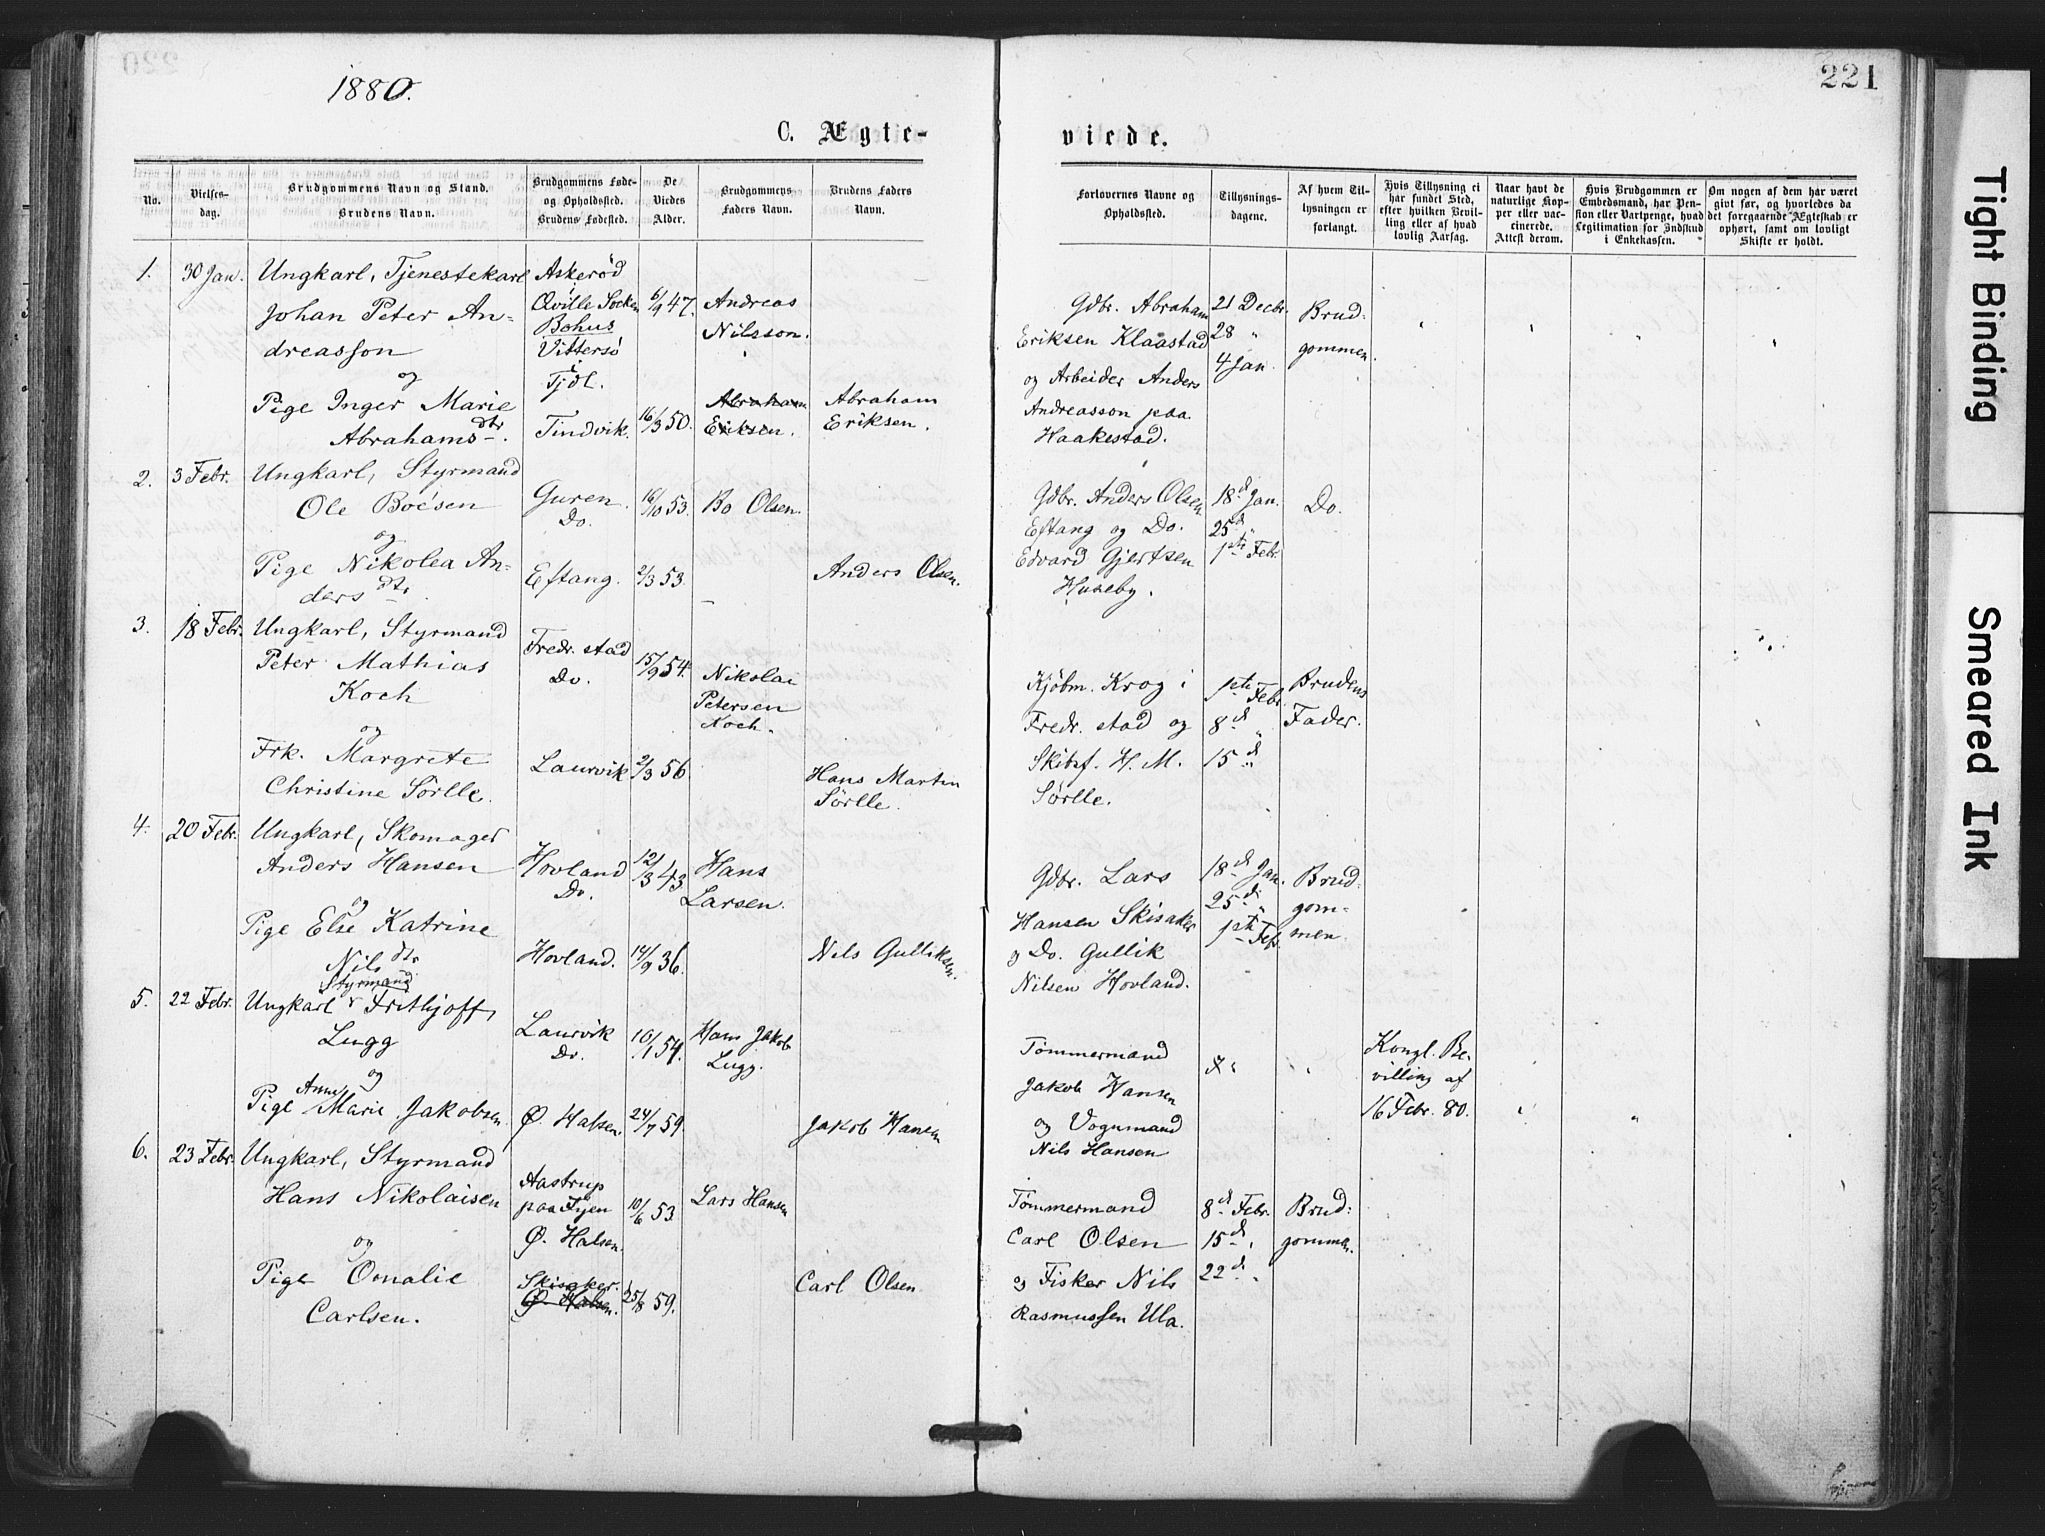 1880.
221
C. Ægte-
viede.
No.
Vielses-
dag.
Brudgommens Navn og Stand.
Brudens Navn.
Brudgommens Føde-
og Opholdssted.
Brudens Fødested.
De
Viedes
Alder.
Brudgommens
Faders Navn.
Brudens Faders
Navn.
Forlovernes Navne og
Opholdssted.
Tillysnings-
dagene.
Af hvem Til-
lysningen er
forlangt.
Hvis Tillysning ei
har fundet Sted,
efter hvilken Bevil-
ling eller af hvad
lovlig Aarsag.
Naar havt de
naturlige Kop-
per eller vac-
cinerede.
Attest derom.
Hvis Brudgommen er
Embedsmand, har Pen-
sion eller Vartpenge, hvad
Legitimation for Indskud
i Enkekassen.
Om nogen af dem har været
givt før, og hvorledes da
det foregaaende Ægteskab er
ophørt, samt om lovligt
Skifte er holdt.
1.
30 Jan.
Ungkarl, Tjenestekarl
Johan Peter An-
dreasson
og
Pige Inger Marie
Abrahamsdtr.
Askerød
Qville Socken
Bohus
Vittersø
i
Tjdl.
Tindvik.
6/9 47.
16/3 50.
Andreas
Nilsson.
Abraham
Eriksen.
Abraham
Eriksen.
Gdbr. Abraham
Eriksen Klaastad
og Arbeider Anders
Andreasson paa
Haakestad.
21 Decbr.
28 "
4 Jan.
Brud-
gommen.
2.
3 Febr.
Ungkarl, Styrmand
Ole Boésen
og
Pige Nikolea An-
dersdtr.
Guren.
Do.
Eftang.
16/10 53.
2/3 53.
Bo Olsen.
Anders Olsen.
Gdbr. Anders Olsen
Eftang og Do.
Edvard Gjertsen
Huseby.
18d Jan.
25d "
1ste Febr.
Do.
3.
18 Febr.
Ungkarl, Styrmand
Peter Mathias
Koch
og
Frk. Margrete
Christine Sörlle.
Fredr. stad
Do.
Laurvik
15/9 54.
2/3 56.
Nikolai
Petersen
Koch.
Hans Martin
Sörlle.
Kjöbm. Krog i
Fredr. stad og
Skibsf. H. M.
Sörlle.
1ste Febr.
8d "
15d "
Brudens
Fader.
4.
20 Febr.
Ungkarl, Skomager
Anders Hansen
og
Pige Else Katrine
Nilsdtr.
Hovland
Do.
Hovland.
12/3 43.
14/9 36.
Hans
Larsen.
Nils Gulliksen.
Gdbr. Lars
Hansen Skisaker
og Do. Gullik
Nilsen Hovland.
18d Jan.
25d "
1ste Febr.
Brud-
gom-
men.
5.
22 Febr.
Styrmand
Ungkarl Frithjoff
Lugg
og
Anne
Pige Marie Jakobsen.
Laurvik
Do.
Ø. Halsen.
10/1 54.
24/7 59.
Hans Jakob
Lugg.
Jakob Hansen
Tömmermand
Jakob Hansen
og Vognmand
Nils Hansen
Kongl. Be-
villing af
16 Febr. 80.
6.
23 Febr.
Ungkarl, Styrmand
Hans Nikolaisen
og
Pige Omalie
Carlsen.
Aastrup
paa Fyen
Ø. Halsen.
Skisaker.
Ø. Halsen.
10/6 53.
25/8 59.
Lars Hansen
Carl Olsen.
Tömmermand
Carl Olsen
og Fisker Nils
Rasmussen Ula.
8d Febr.
15d "
22d "
Brud-
gommen.
Tight Binding
Smeared Ink